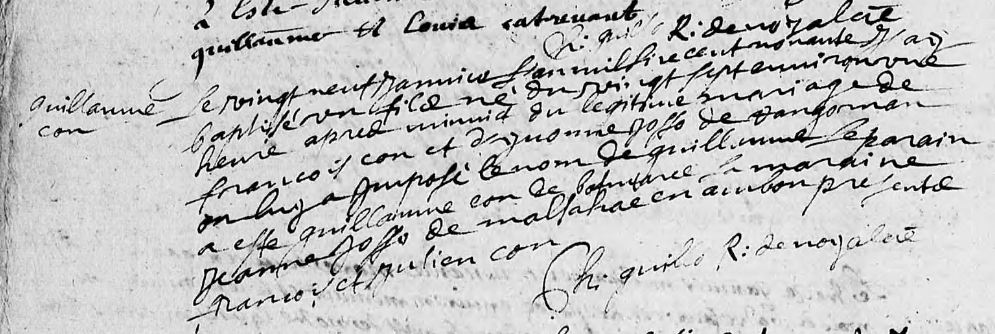 à Este
guillaume et Louis catrevant
Ch: guillo R: de noyalae
guillaume
con
Le vingt neuf Janvier L'an mil six cent nonante J'ay
baptisé un fils né du vingt sept environ une
heure apres minuit du legitime mariage de
francois con et d'yvonne Josso de
on luy a Imposé le nom de guillaume Le parain
a esté guillaume con de la maraine
Jeanne Josso de en ambon presents
francois et Julien con
Ch: guillo R: de noyalae